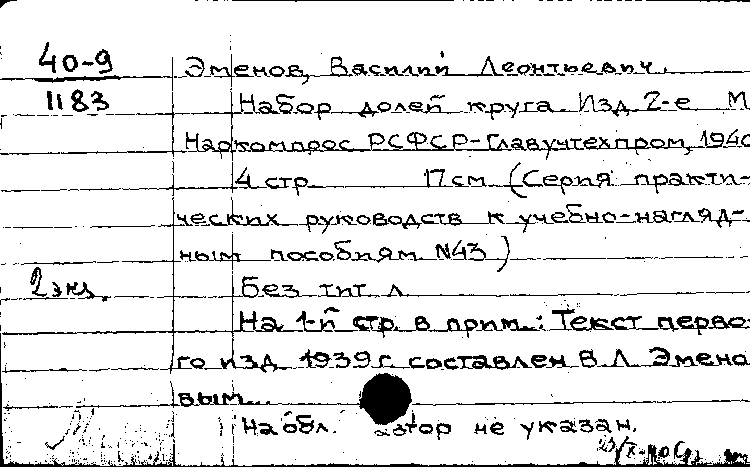 40-9
1183
Эменов, Василий Леонтьевич.
Набор долей круга. Изд. 2-е М
Наркомпрос РСФСР-Главучтехпром, 1940
4 стр. 17 см. (Серия практи-
ческих руководств к учебно-нагляд-
ным пособиям N43)
2 экз.
Без тит. л.
На 1-й стр. в прим.: Текст перво-
го изд. 1939 г. составлен В. Л. Эмено-
вым...
На обл. автор не указан.